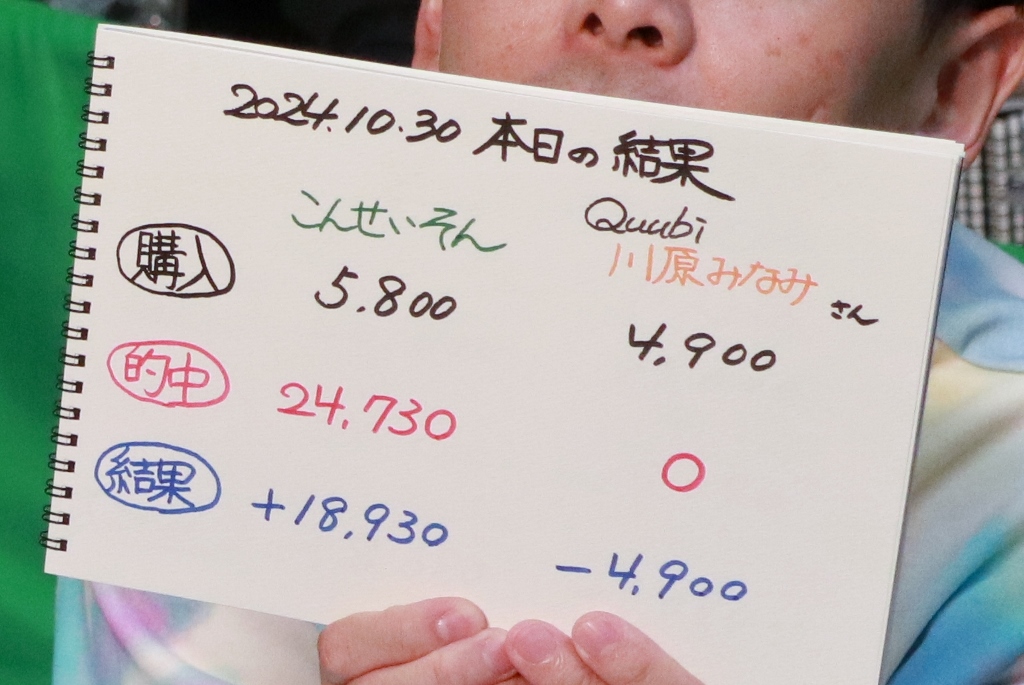 2024.10.30 本日の結果
こんせいそん Quubi
川原みなみさん
購入 5.800 4.900
的中 24.730 0
結果 +18.930 -4.900